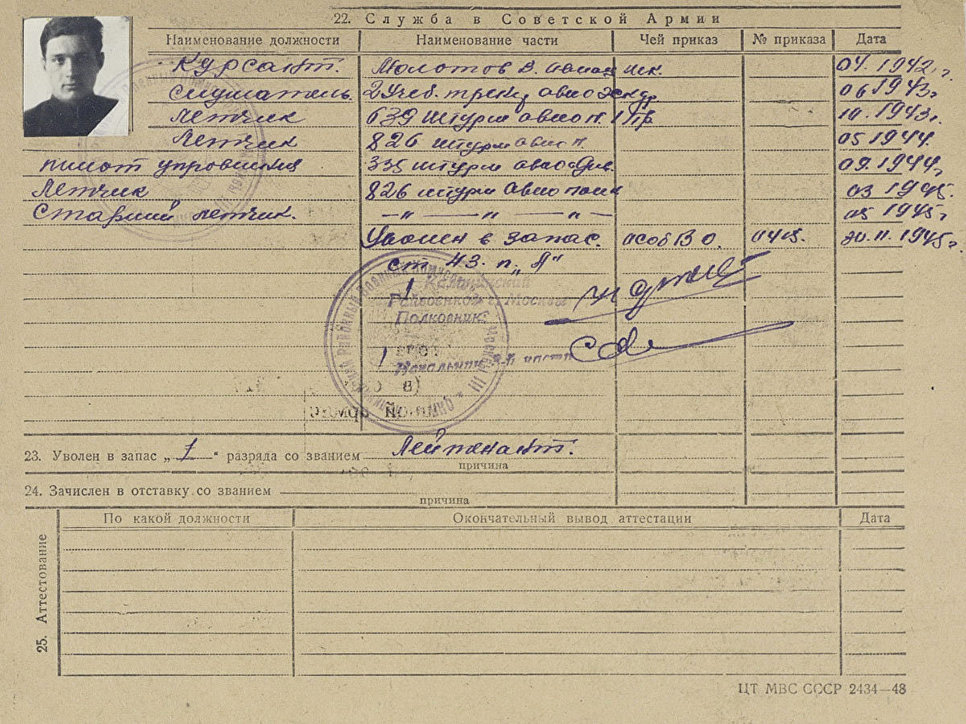 22. Служба в Советской Армии
Наименование должности Наименование части Чей приказ № приказа Дата
Курсант. Молотов В. авиац шк. 04.1942 г.
Слушатель. 2 Учеб. трен. авиоэскдр. 06 1943 г.
Летчик 639 штурм авио п. 1 Пр. 10.1943 г.
Летчик 826 штурм авио п. 05 1944.
пилот управления 335 штурм авио див. 09.1944 г.
Летчик 826 штурм авио полк 03 1945.
Старший летчик. —"— —"— —"— 05 1945 г.
Уволен в запас. особ ВО. 0413. 20.11.1945 г.
ст 43. п. „А"
Калининский
Райвоенком г. Москвы
Полковник
Начальник 3-й части
23. Уволен в запас „ 1 " разряда со званием Лейтенант.
причина
24. Зачислен в отставку со званием
причина
25. Аттестование
По какой должности Окончательный вывод аттестации Дата
ЦТ МВС СССР 2434—48